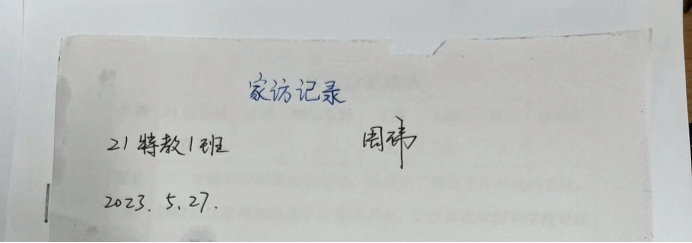 家访记录
21特教1班 周玮
2023.5.27.